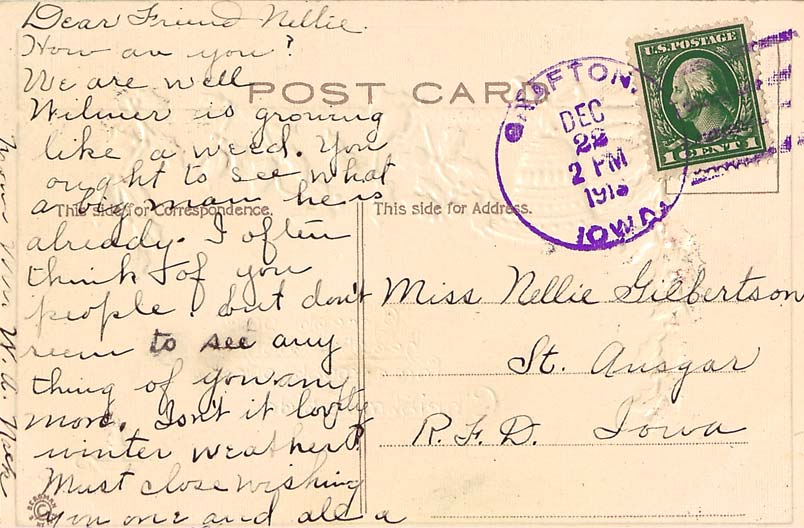 Dear Friend Nellie.
How are you?
We are well
Wilmer is growing
like a weed. You
ought to see what
a big man he is
already. I often
think of you
people, but don't
seem to see any
thing of you any
more. Isn't it lovely
winter weather?
Must close wishing
you one and all a
POST CARD
This side for Correspondence.
This side for Address.
GRAFTON,
DEC
22
2 PM
1913
IOWA
U.S. POSTAGE
1 CENT 1
Miss Nellie Gilbertson
St. Ansgar
R.F.D. Iowa